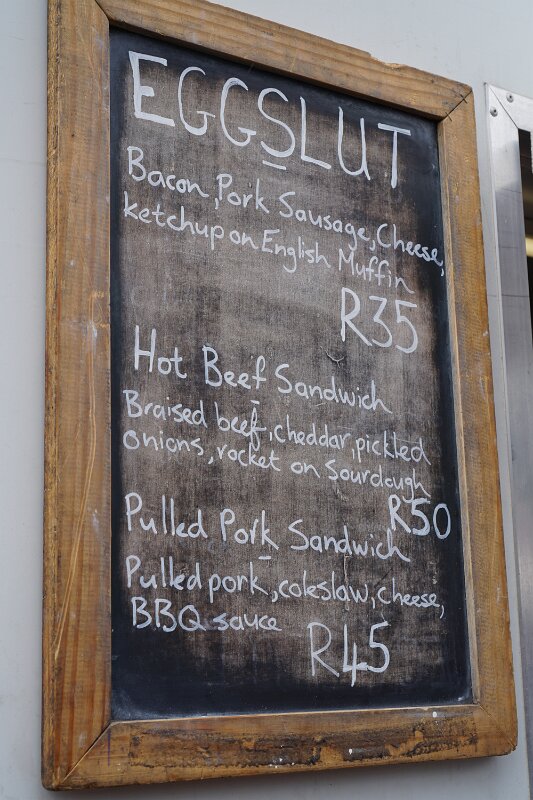 EGGSLUT
Bacon, Pork Sausage, Cheese,
ketchup on English Muffin
R35
Hot Beef Sandwich
Braised beef, cheddar, pickled
onions, rocket on sourdough
R50
Pulled Pork Sandwich
Pulled pork, coleslaw, cheese,
BBQ sauce
R45